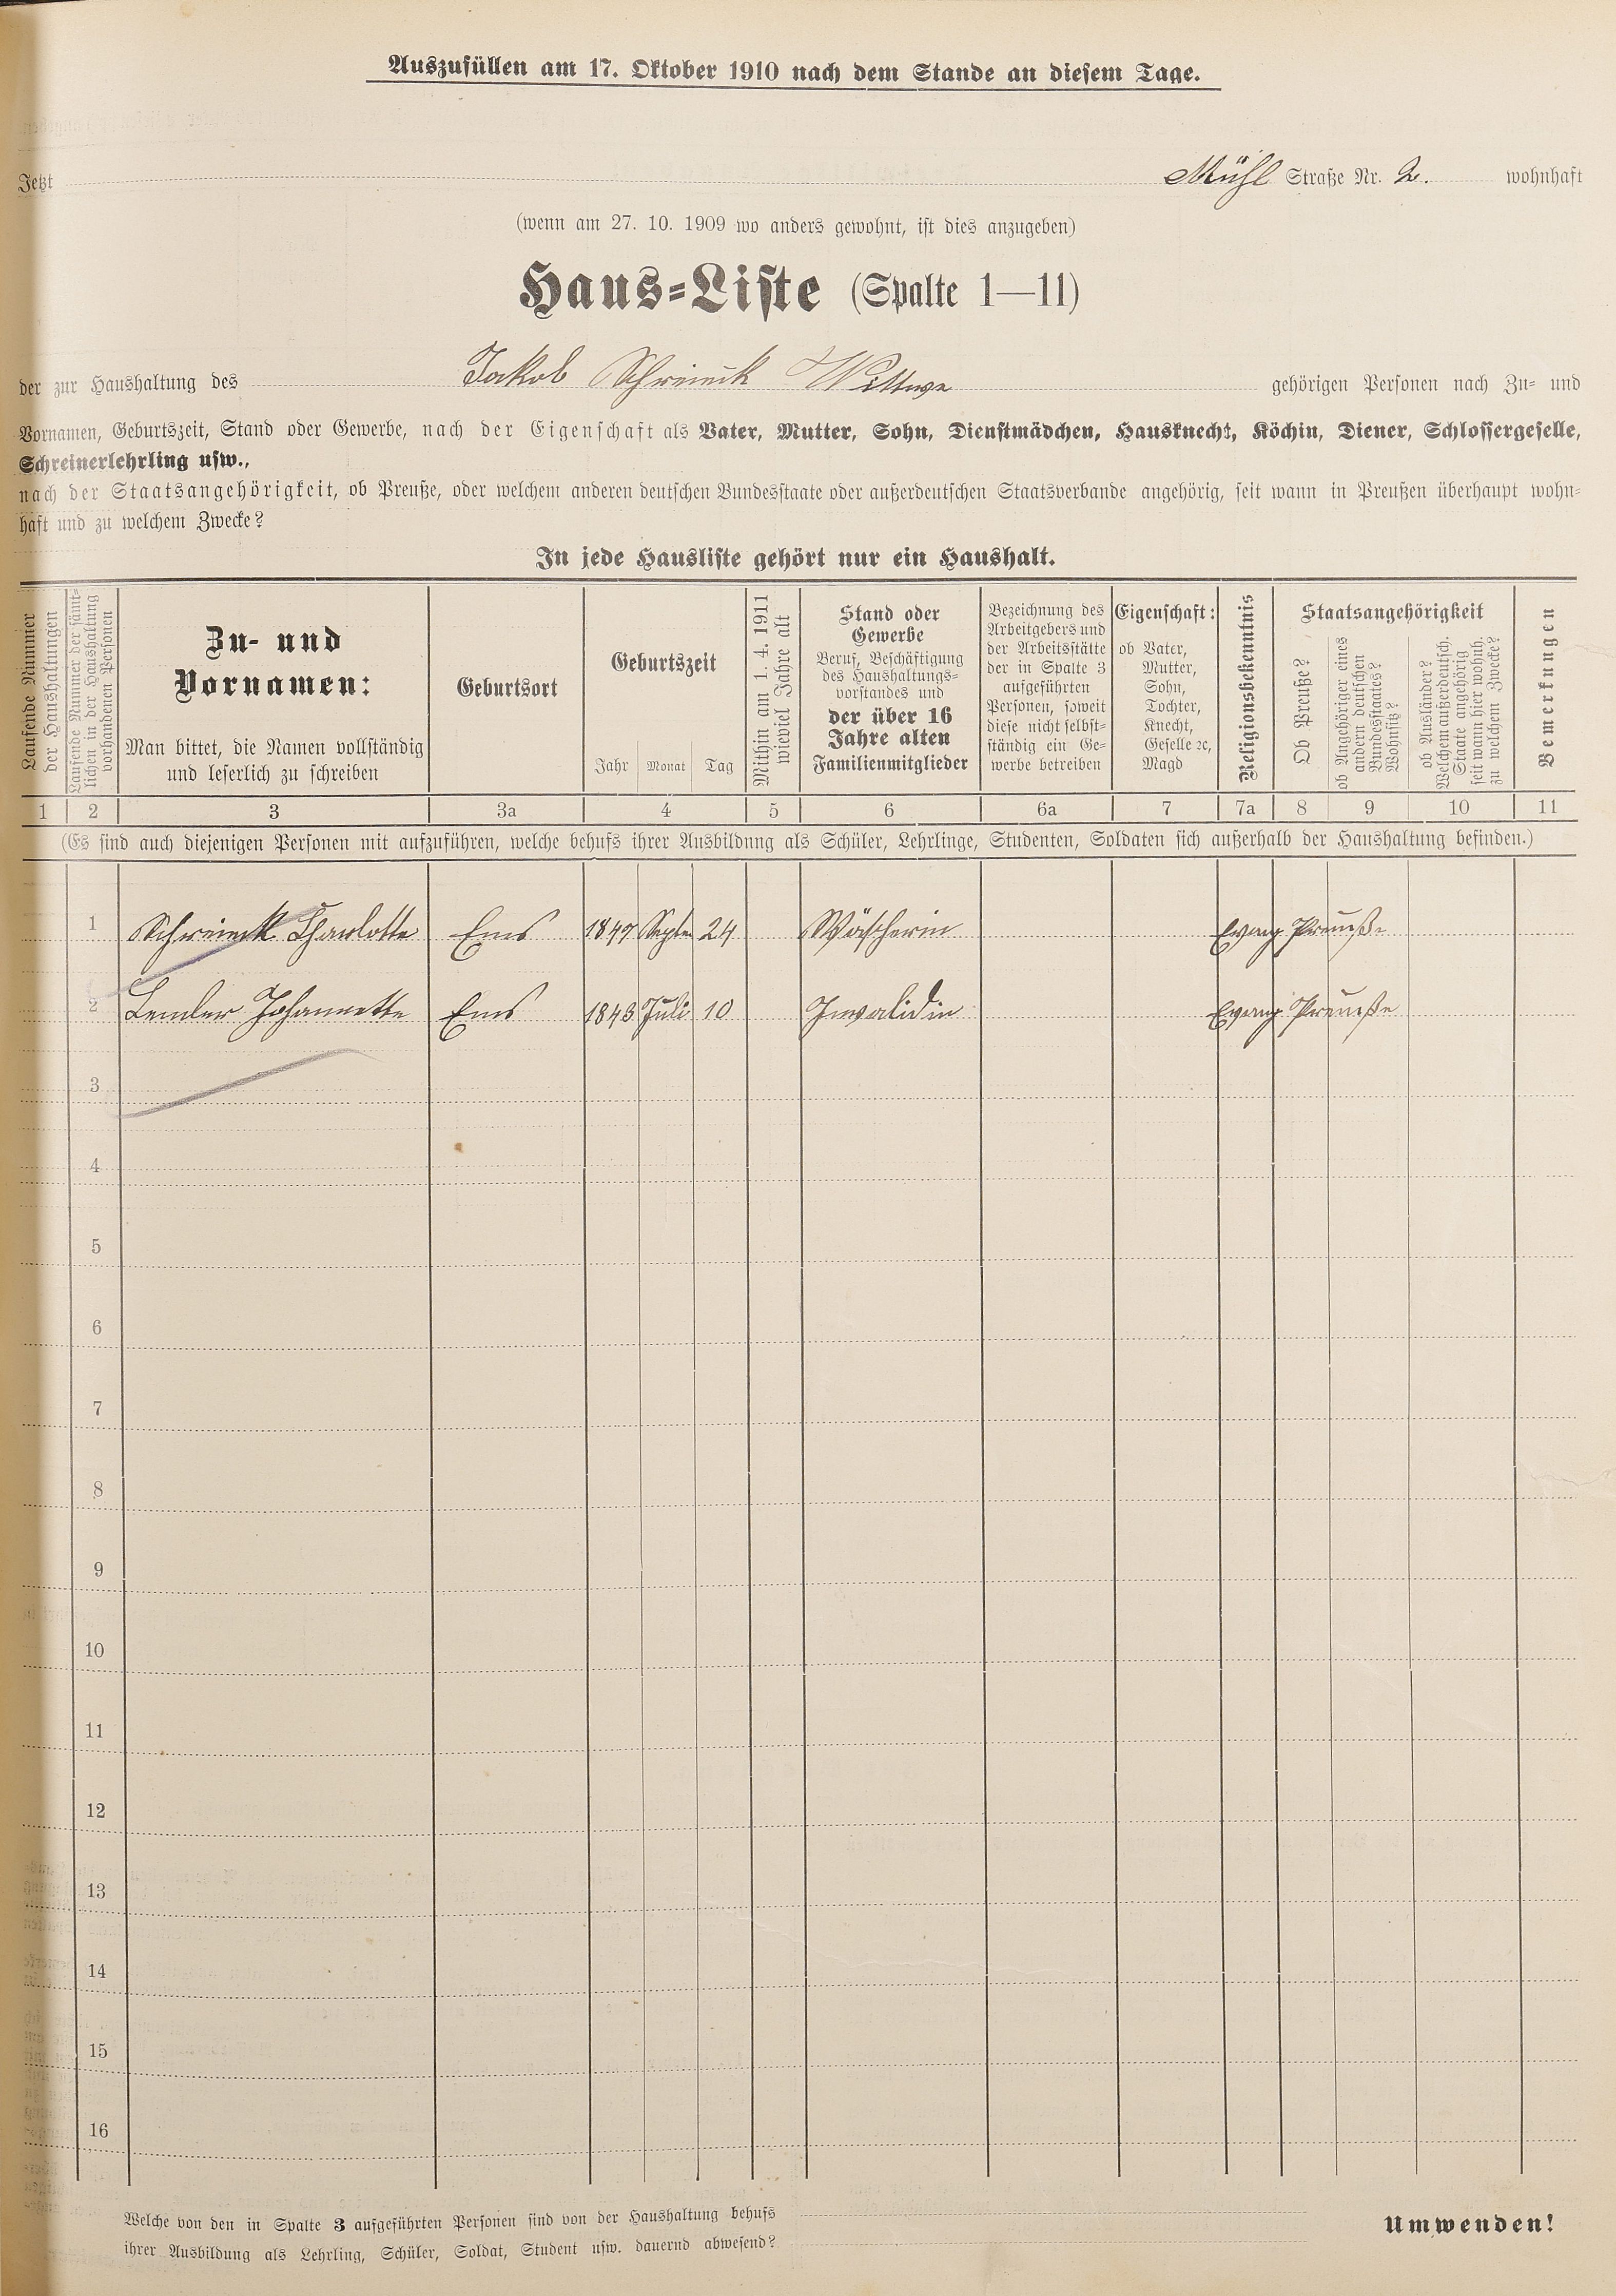 Auszufüllen am 17. Oktober 1910 nach dem Stande an diesem Tage.
Jetzt Mühl Straße Nr. 2. wohnhaft
(wenn am 27. 10. 1909 wo anders gewohnt, ist dies anzugeben)
Haus-Liste (Spalte 1—11)
der zur Haushaltung des Jakob Wittwe gehörigen Personen nach Zu- und
Vornamen, Geburtszeit, Stand oder Gewerbe, nach der Eigenschaft als Vater, Mutter, Sohn, Dienstmädchen, Hausknecht, Köchin, Diener, Schlossergeselle,
Schreinerlehrling usw.,
nach der Staatsangehörigkeit, ob Preuße, oder welchem anderen deutschen Bundesstaate oder außerdeutschen Staatsverbande angehörig, seit wann in Preußen überhaupt wohn-
haft und zu welchem Zwecke?
In jede Hausliste gehört nur ein Haushalt.
Laufende Nummer
der Haushaltungen
Laufende Nummer der sämt-
lichen in der Haushaltung
vorhandenen Personen
Zu- und
Vornamen:
Man bittet, die Namen vollständig
und leserlich zu schreiben
Geburtsort
Geburtszeit
Jahr Monat Tag
Mithin am 1. 4. 1911
wieviel Jahre alt
Stand oder
Gewerbe
Beruf, Beschäftigung
des Haushaltungs-
vorstandes und
der über 16
Jahre alten
Familienmitglieder
Bezeichnung des
Arbeitgebers und
der Arbeitsstätte
der in Spalte 3
aufgeführten
Personen, soweit
diese nicht selbst-
ständig ein Ge-
werbe betreiben
Eigenschaft:
ob Vater,
Mutter,
Sohn,
Tochter,
Knecht,
Geselle ꝛc,
Magd
Religionsbekenntnis
Staatsangehörigkeit
Ob Preuße?
ob Angehöriger eines
andern deutschen
Bundesstaates?
Wohnsitz?
ob Ausländer?
Welchem außerdeutsch.
Staate angehörig
seit wann hier wohnh.
zu welchem Zwecke?
Bemerkungen
1 2 3 3a 4 5 6 6a 7 7a 8 9 10 11
(Es sind auch diejenigen Personen mit aufzuführen, welche behufs ihrer Ausbildung als Schüler, Lehrlinge, Studenten, Soldaten sich außerhalb der Haushaltung befinden.)
1 Charlotte Ems 1847 Septen 24 Wäscherin Evang Preuße
2 Lemler Johannette Ems 1843 Juli 10 Invalidin Evang Preuße
3
4
5
6
7
8
9
10
11
12
13
14
15
16
Welche von den in Spalte 3 aufgeführten Personen sind von der Haushaltung behufs
ihrer Ausbildung als Lehrling, Schüler, Soldat, Student usw. dauernd abwesend?
Umwenden!